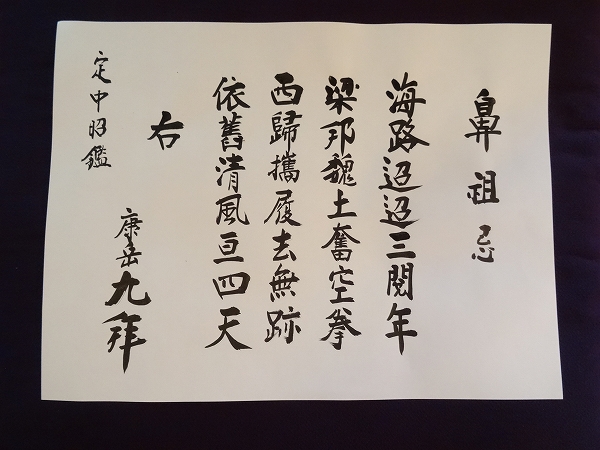 鼻祖忌
海路迢迢三閲年
梁邦魏土奮空拳
西歸攜履去無跡
依舊清風亘四天
右
定中昭鑑
康岳九拜